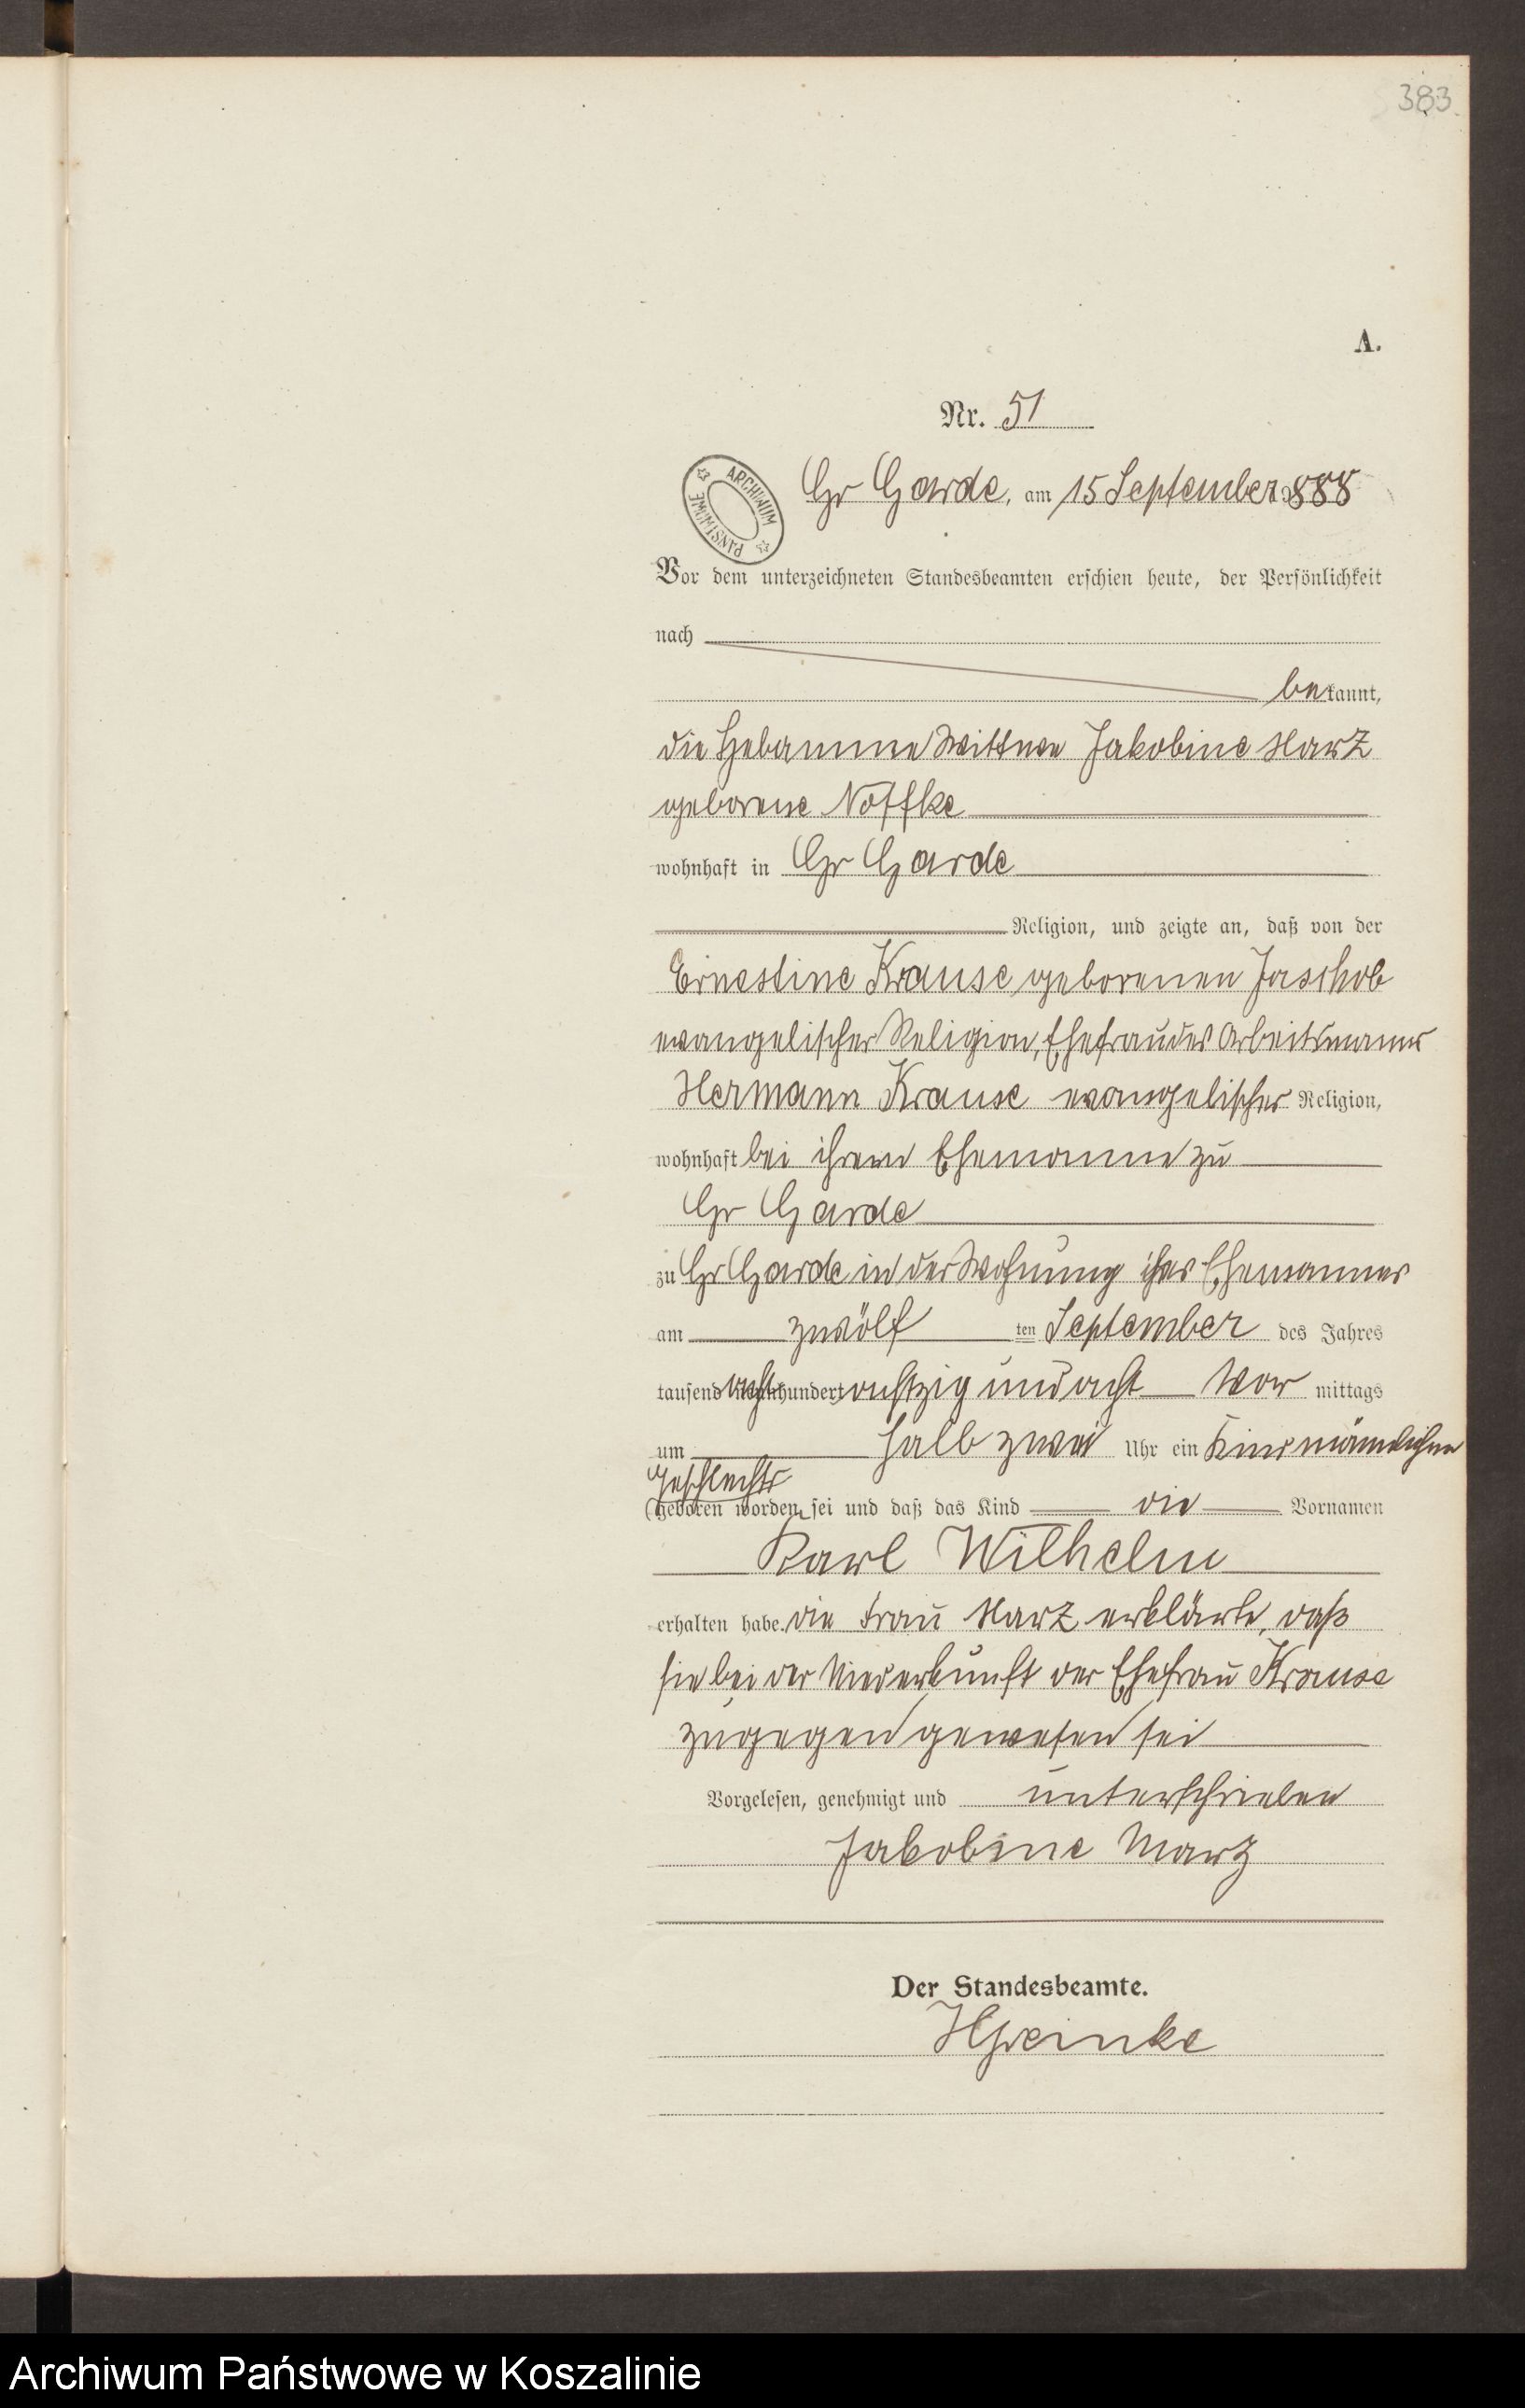 383.
A.
Nr. 51
ARCHIWUM PAŃSTWOWE
Gr Garde, am 15 September 1888
Vor dem unterzeichneten Standesbeamten erschien heute, der Persönlichkeit
nach
bekannt,
die Hebamme Wittwe Jakobine Marz
geborene Noffke
wohnhaft in Gr Garde
Religion, und zeigte an, daß von der
Ernestine Krause geborenen Jaschob
evangelischer Religion, Ehefrau des Arbeitsmanns
Hermann Krause evangelischer Religion,
wohnhaft bei ihrem Ehemanne zu
Gr Garde
zu Gr Garde in der Wohnung ihres Ehemannes
am zwölf ten September des Jahres
tausend acht hundert achtzig und acht Vor mittags
um halb zwei Uhr ein Kind männlichen
Geschlechts
geboren worden sei und daß das Kind die Vornamen
Karl Wilhelm
erhalten habe. die Frau Marz erklärte, daß
sie bei der Niederkunft der Ehefrau Krause
zugegen gewesen sei
Vorgelesen, genehmigt und unterschrieben
Jakobine Marz
Der Standesbeamte.
Archiwum Państwowe w Koszalinie